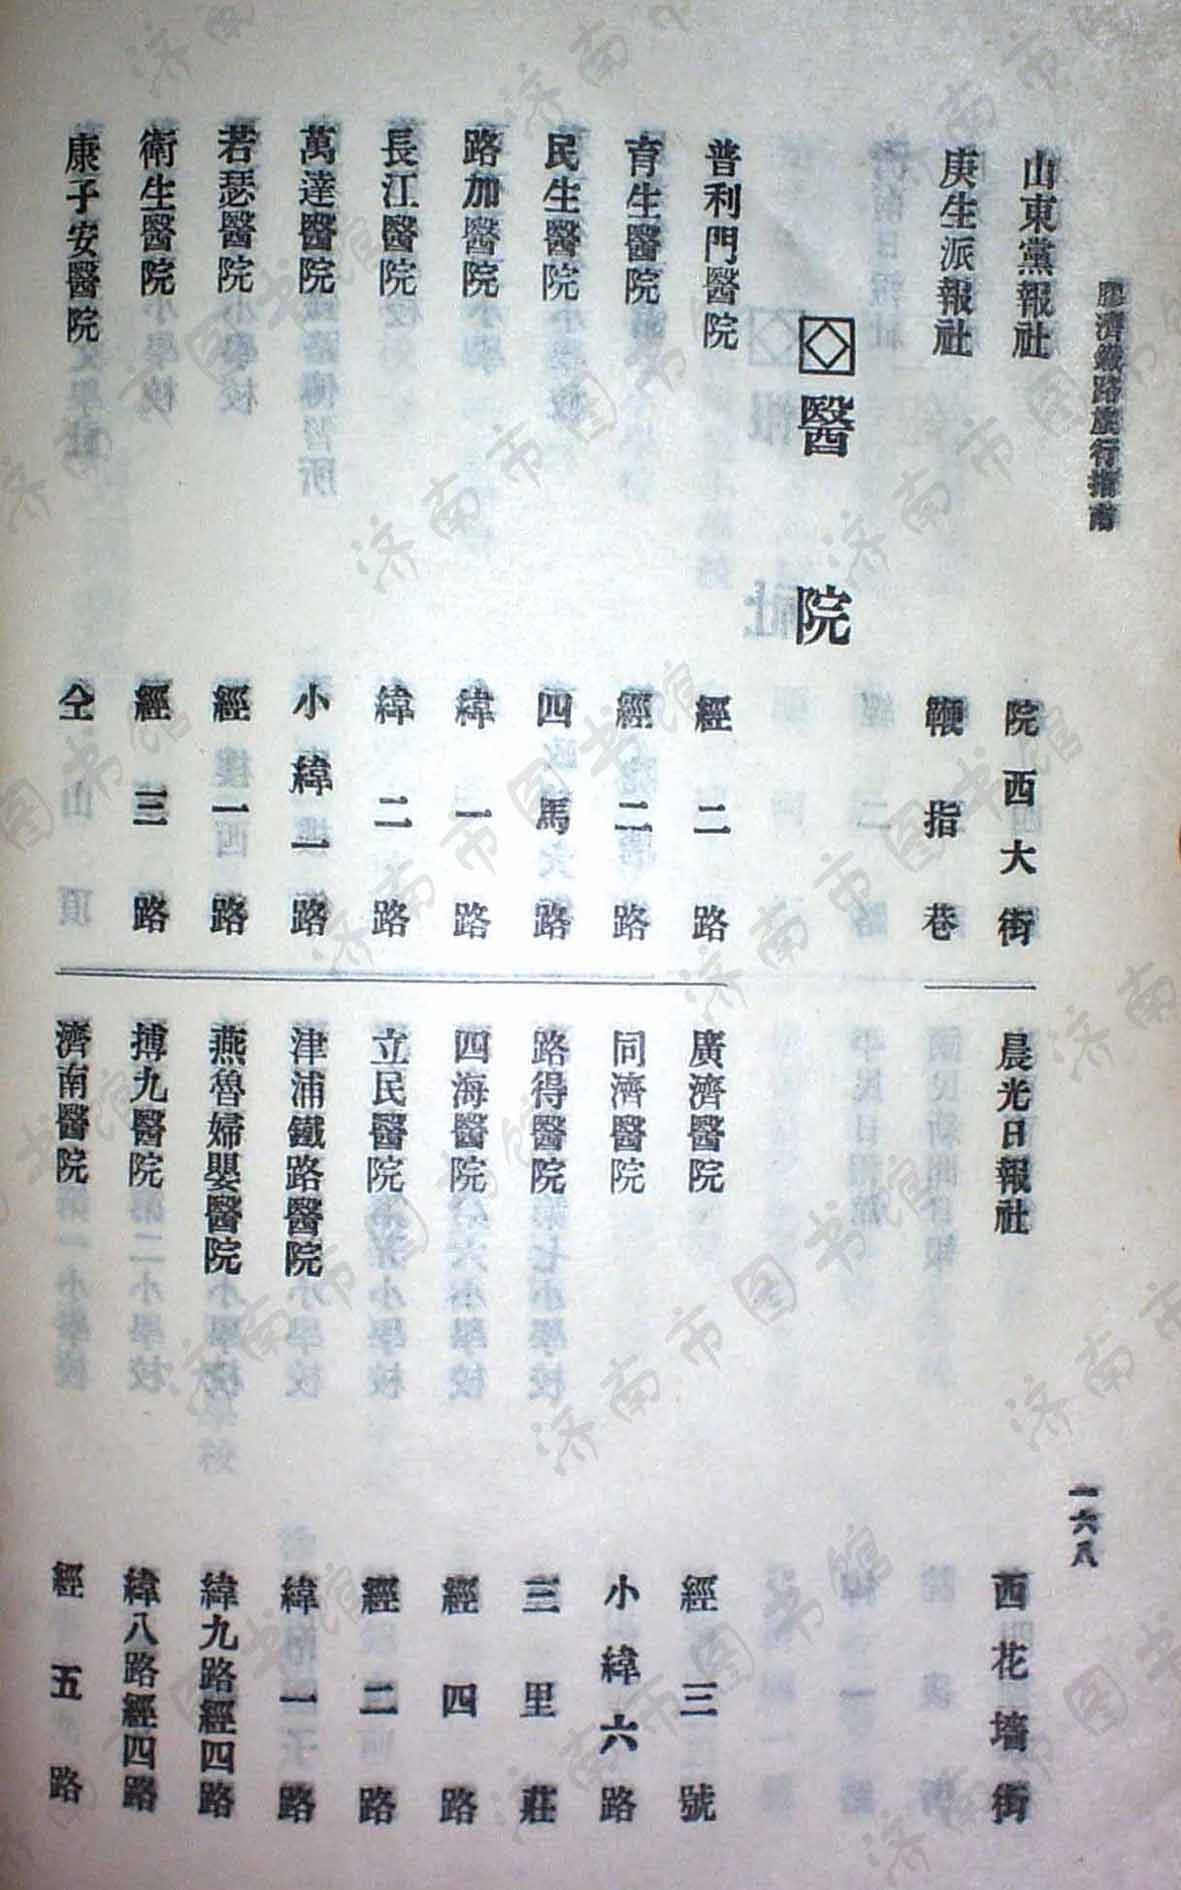 膠濟鐵路旅行指南
一六八
山東黨報社 院西大街
庚生派報社 鞭指巷
晨光日報社 西花墻街
醫院
普利門醫院 經二路
育生醫院 經二路
民生醫院 四馬路
路加醫院 緯一路
長江醫院 緯二路
萬達醫院 小緯一路
若瑟醫院 經一路
衛生醫院 經三路
康子安醫院 仝
廣濟醫院 經三號
同濟醫院 小緯六路
路得醫院 三里莊
四海醫院 經四路
立民醫院 經二路
津浦鐵路醫院 緯一路
燕魯婦嬰醫院 緯九路經四路
搏九醫院 緯八路經四路
濟南醫院 經五路
济南市图书馆